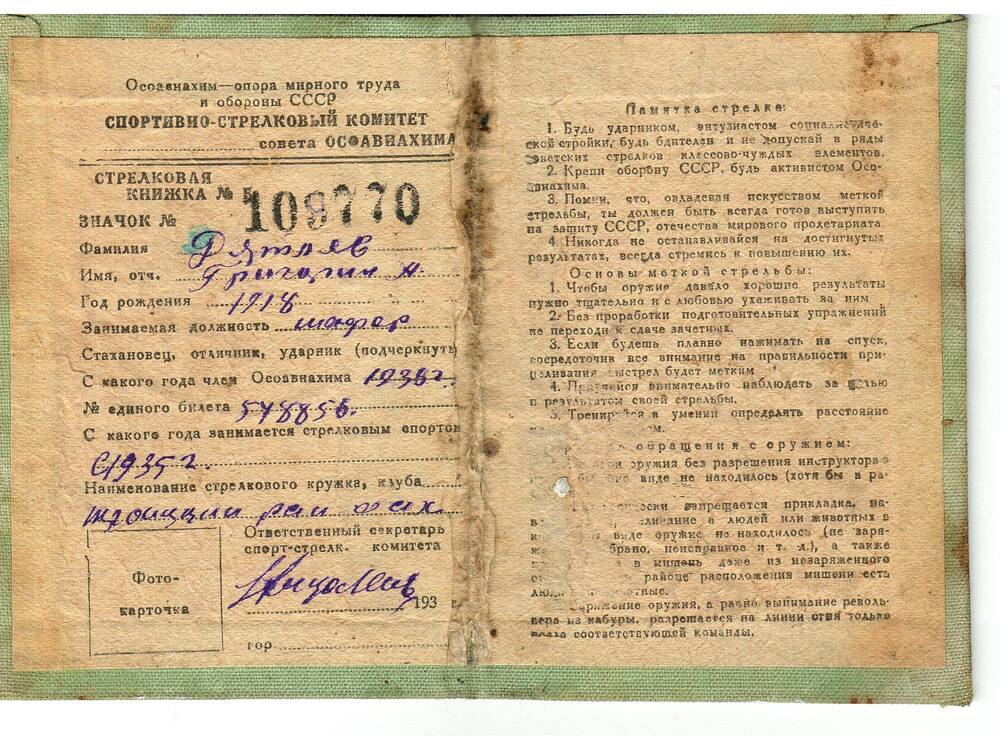 Осоавиахим—опора мирного труда
и обороны СССР
СПОРТИВНО-СТРЕЛКОВЫЙ КОМИТЕТ
совета ОСОАВИАХИМА
СТРЕЛКОВАЯ
КНИЖКА № Б
109770
ЗНАЧОК №
Фамилия
Имя, отч. Григорий А.
Год рождения 1918
Занимаемая должность шофер
Стахановец, отличник, ударник (подчеркнуть)
С какого года член Осоавиахима 1936г.
№ единого билета 578856.
С какого года занимается стрелковым спортом
С 1935 г.
Наименование стрелкового кружка, клуба
рай
Ответственный секретарь
спорт-стрелк. комитета
193 г.
Фото-
карточка
гор
Памятка стрелка:
1. Будь ударником, энтузиастом социалистиче-
ской стройки, будь бдителен и не допускай в ряды
советских стрелков классово-чуждых элементов.
2. Крепи оборону СССР, будь активистом Осо-
авиахима.
3. Помни, что, овладевая искусством меткой
стрельбы, ты должен быть всегда готов выступить
на защиту СССР, отечества мирового пролетариата.
4. Никогда не останавливайся на достигнутых
результатах, всегда стремись к повышению их.
Основы меткой стрельбы:
1. Чтобы оружие давало хорошие результаты
нужно тщательно и с любовью ухаживать за ним
2. Без проработки подготовительных упражнений
не переходи к сдаче зачетных.
3. Если будешь плавно нажимать на спуск,
сосредоточив все внимание на правильности при-
целивания, выстрел будет метким
4. Приучайся внимательно наблюдать за целью
и результатом своей стрельбы.
5. Тренируйся в умении определять расстояние
обращения с оружием:
оружия без разрешения инструктора
виде не находилось (хотя бы в ра-
запрещается прикладка, на-
в людей или животных в
виде оружие не находилось (не заря-
неисправное и т. д.), а также
в мишень даже из незаряженного
районе расположения мишени есть
оружения, а равно вынимание револь-
вера из кабуры, разрешается на линии огня только
после соответствующей команды.